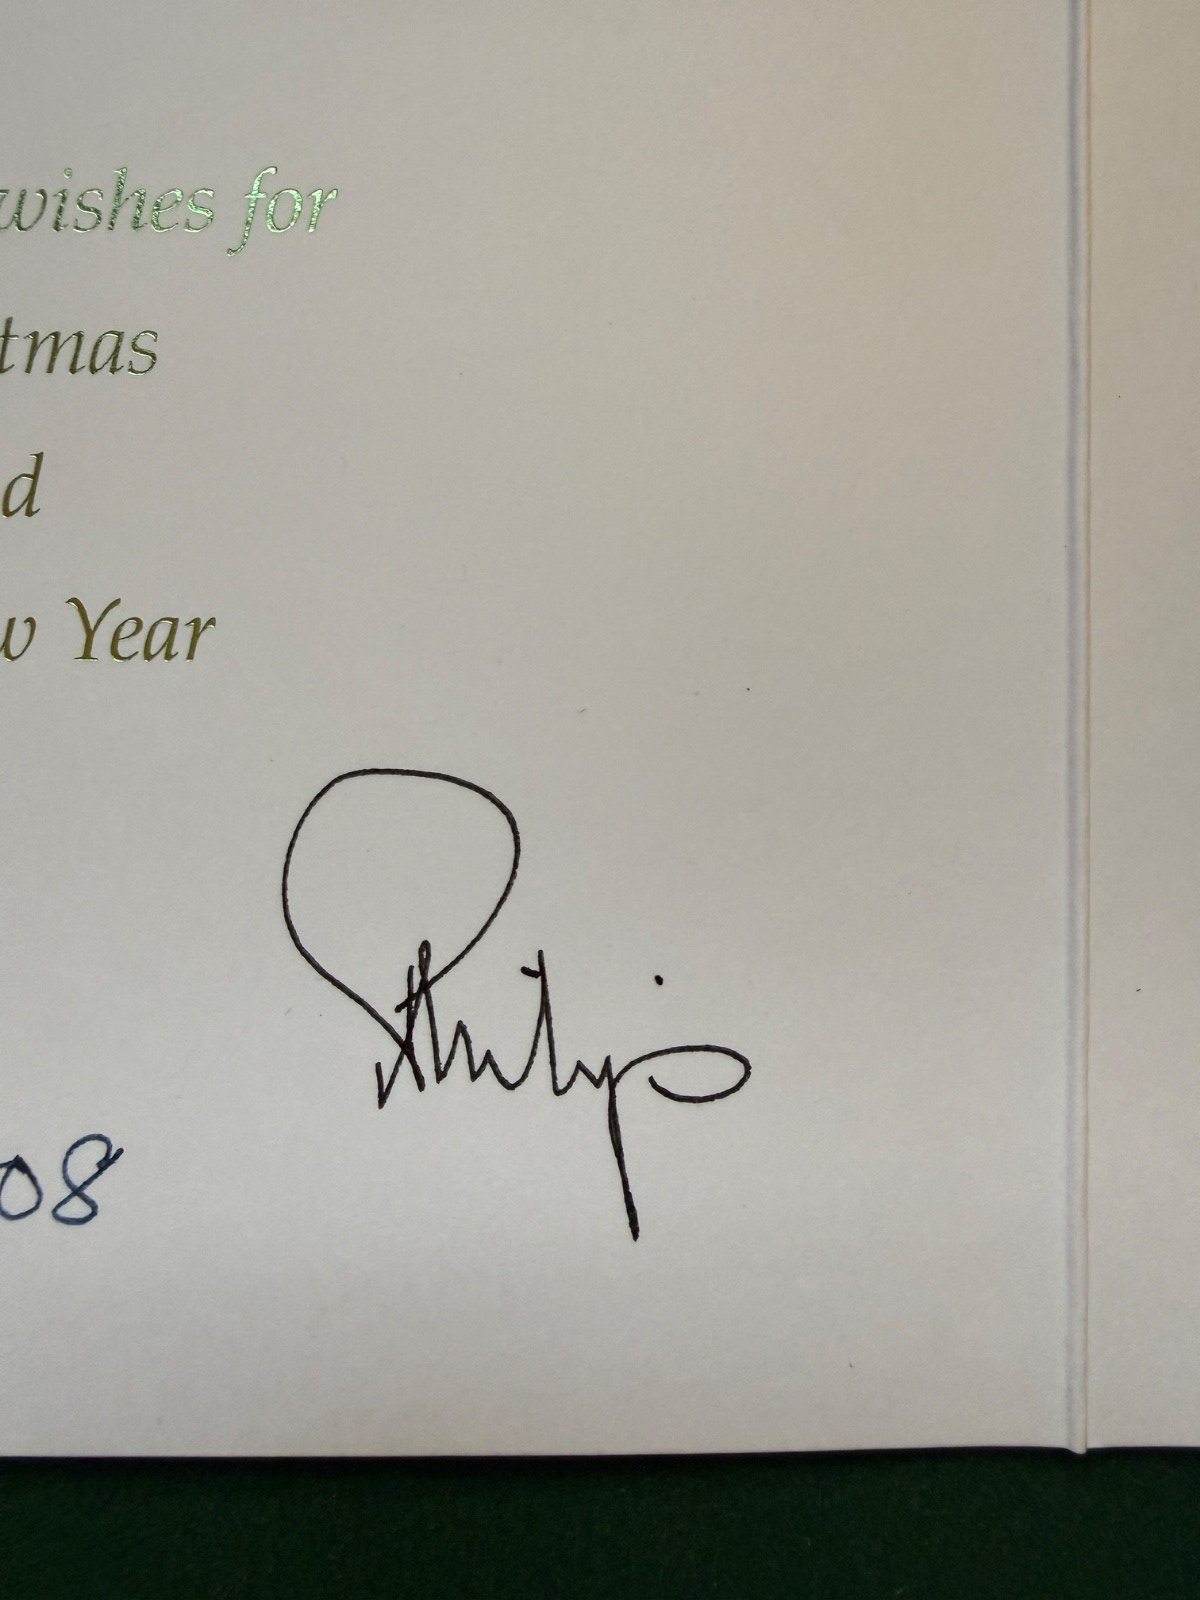 wishes for
tmas
d
w Year
Philip
08